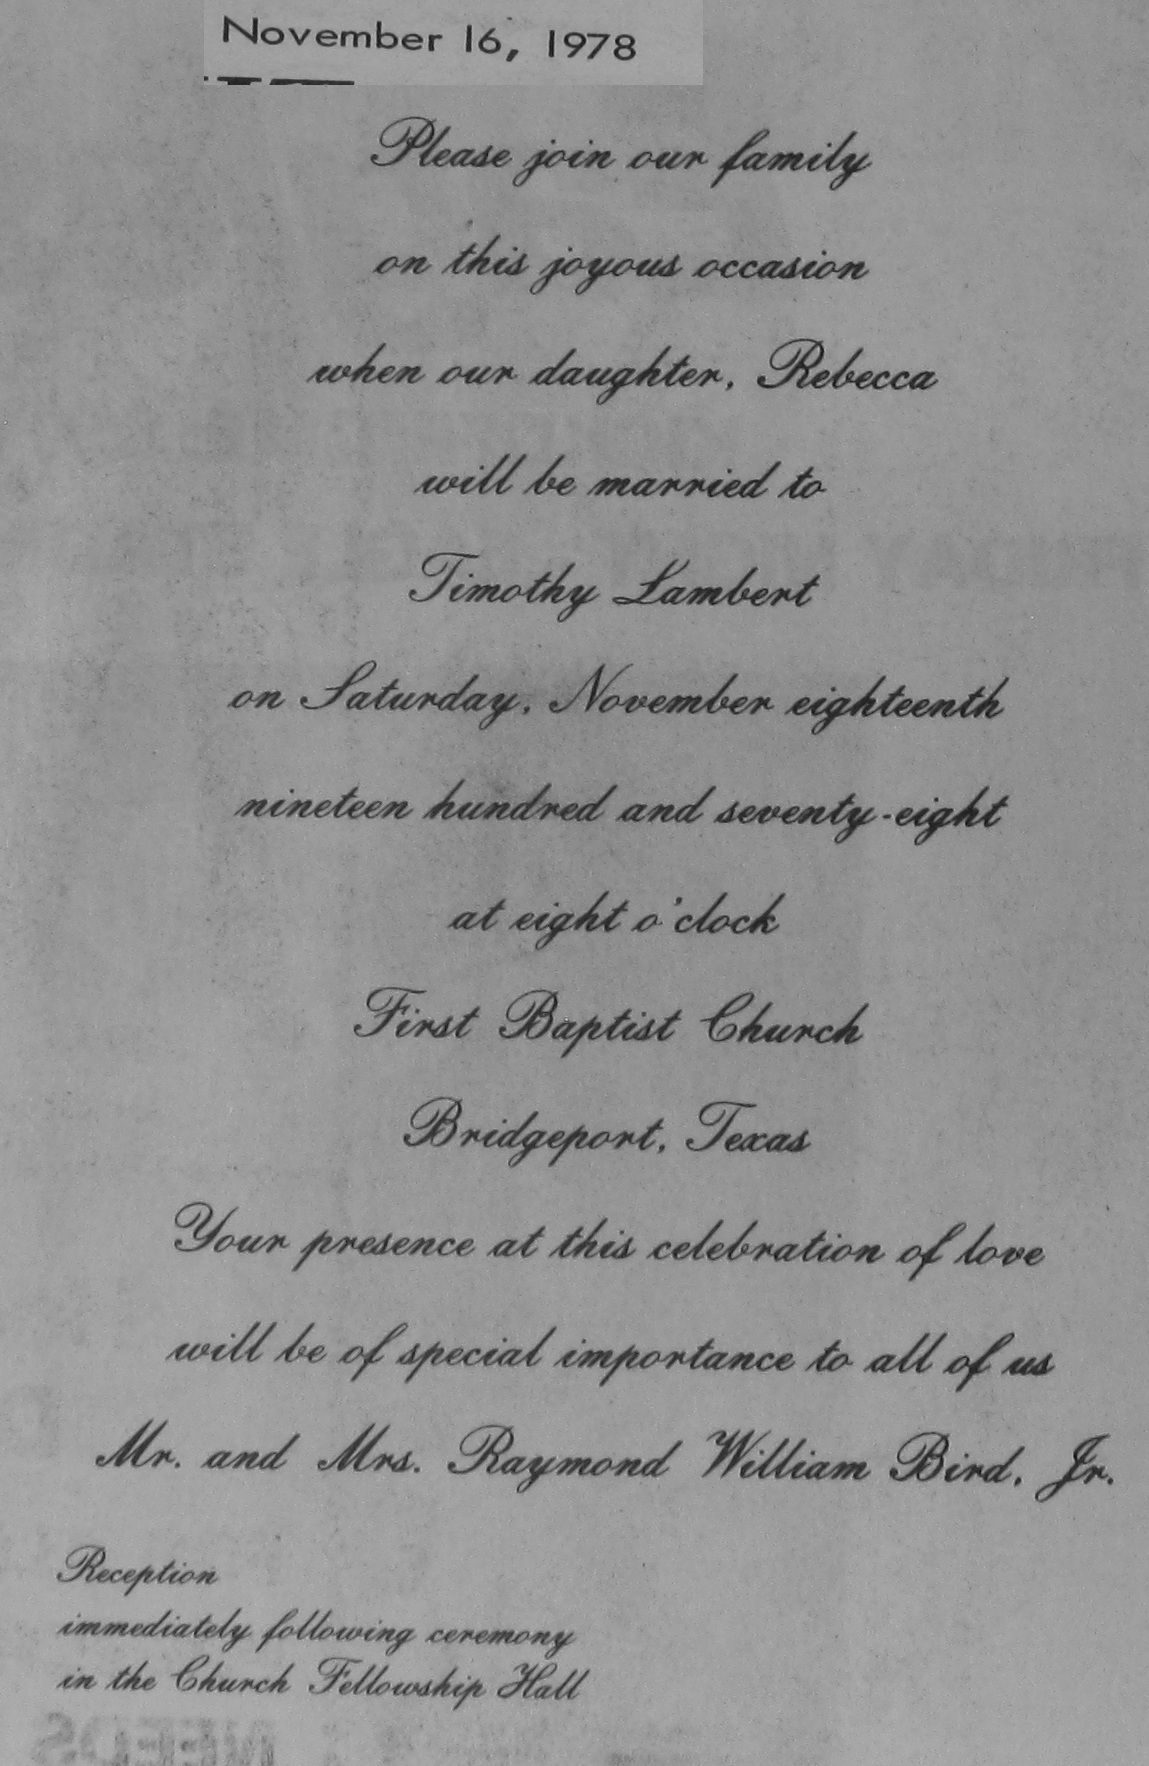 November 16, 1978
Please join our family
on this joyous occasion
when our daughter, Rebecca
will be married to
Timothy Lambert
on Saturday, November eighteenth
nineteen hundred and seventy-eight
at eight o'clock
First Baptist Church
Bridgeport, Texas
Your presence at this celebration of love
will be of special importance to all of us
Mr. and Mrs. Raymond William Bird, Jr.
Reception
immediately following ceremony
in the Church Fellowship Hall